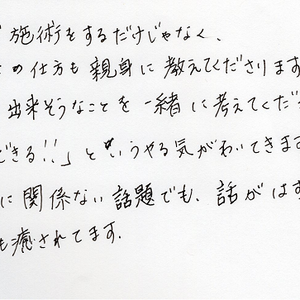 施術をするだけじゃなく、
の仕方も親身に教えてくださります
出来そうなことを一緒に考えてくだ
できる!!」というやる気がわいてきます
に関係ない話題でも、話がはず
も癒されてます.